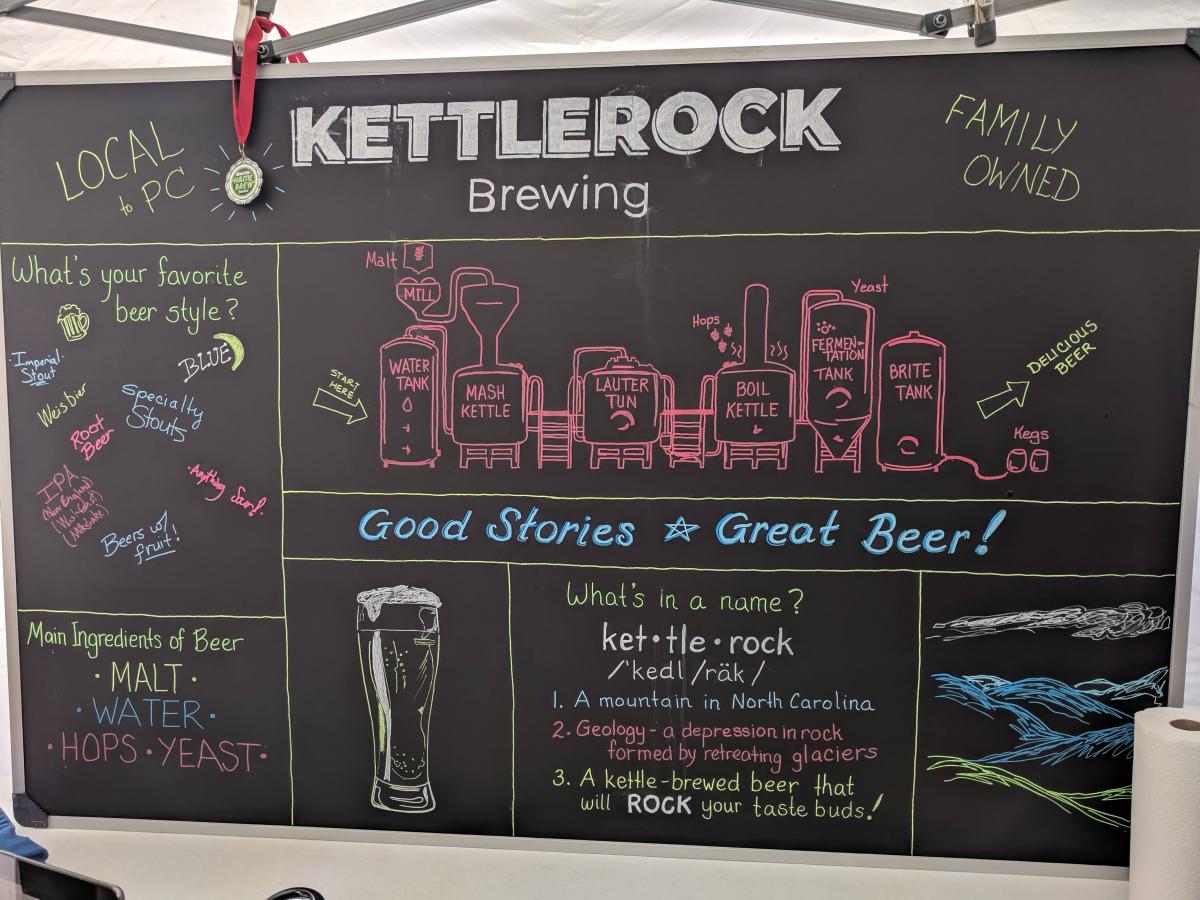 KETTLEROCK
Brewing
LOCAL
to PC
HOME
BREW
FAMILY
OWNED
What's your favorite
beer style?
Imperial
Stout
BLUE
Weisbier
Specialty
Stouts
Root
Beer
IPA
(New England)
(Milkshake)
Anything Sour!
Beers w/
fruit!
Main Ingredients of Beer
· MALT ·
· WATER ·
· HOPS · YEAST ·
START
HERE
Malt
MILL
WATER
TANK
MASH
KETTLE
LAUTER
TUN
Hops
BOIL
KETTLE
Yeast
FERMEN-
TATION
TANK
BRITE
TANK
Kegs
DELICIOUS
BEER
Good Stories ☆ Great Beer!
What's in a name?
ket·tle·rock
/'kedl /räk /
1. A mountain in North Carolina
2. Geology - a depression in rock
formed by retreating glaciers
3. A kettle-brewed beer that
will ROCK your taste buds!